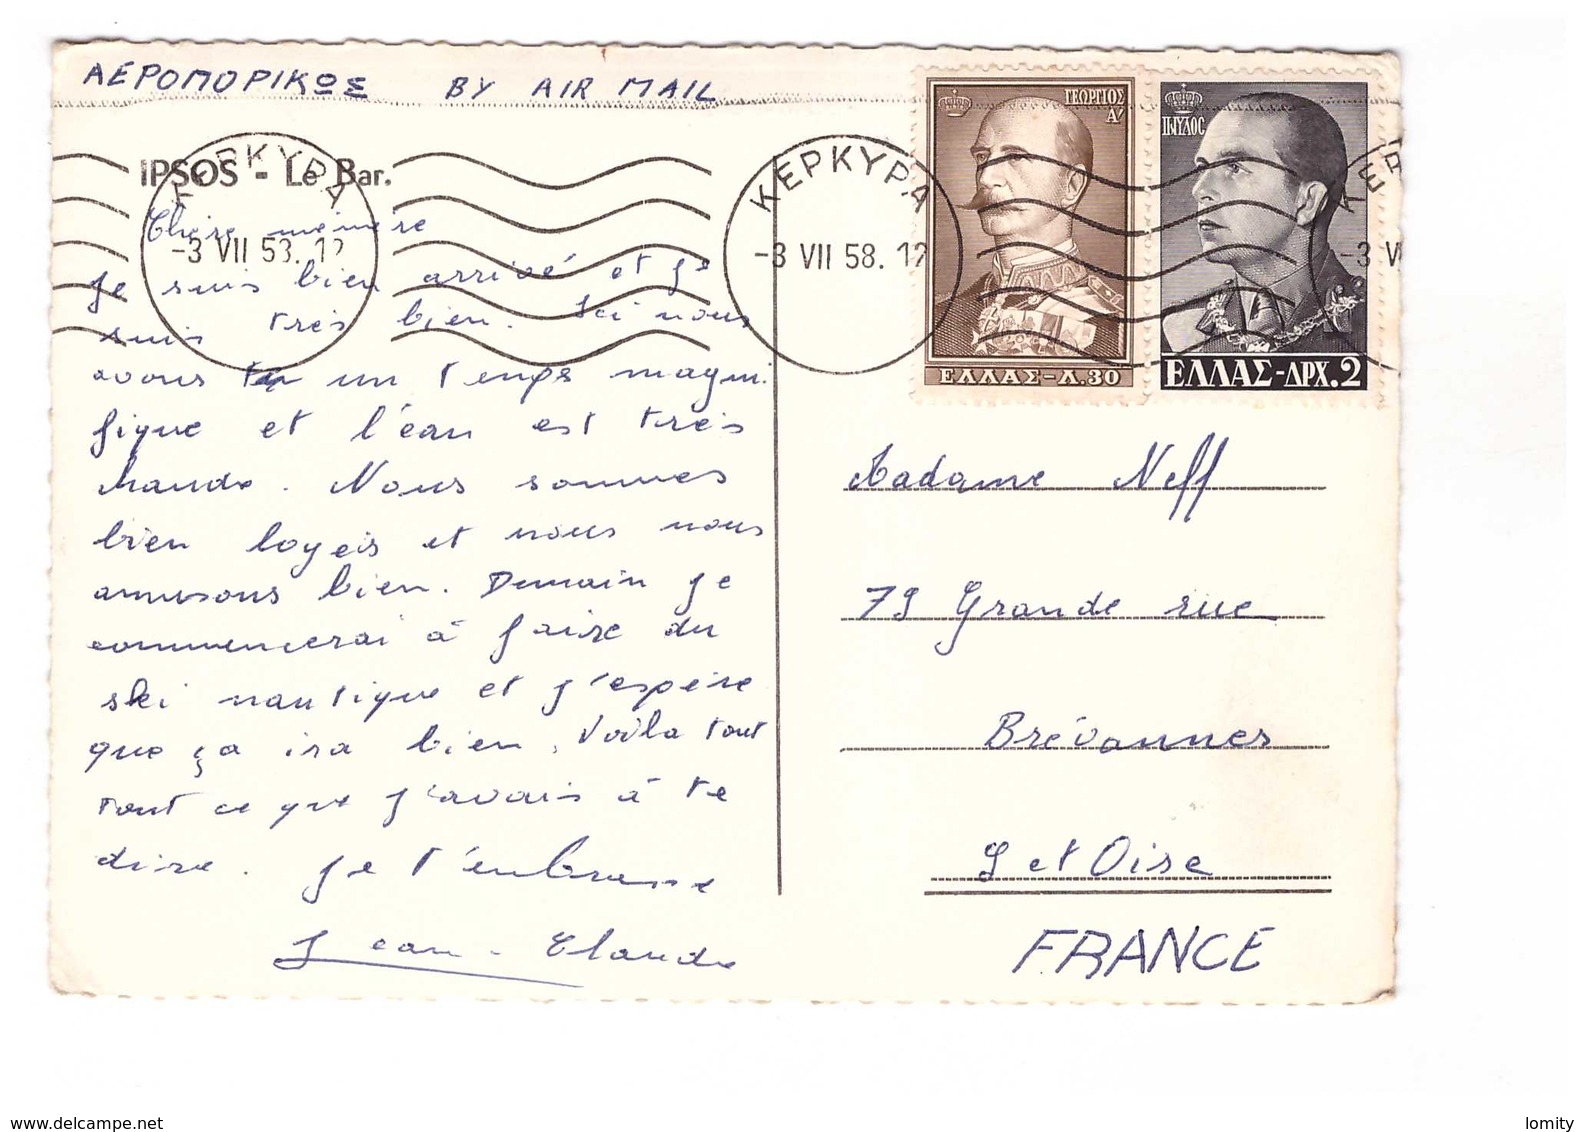 ΑΕΡΟΠΟΡΙΚΩΣ BY AIR MAIL
IPSOS - Le Bar.
ΚΕΡΚΥΡΑ
-3 VII 58.12
ΚΕΡΚΥΡΑ
-3 VII 58.12
ΚΕΡ
-3 V
ΓΕΩΡΓΙΟΣ
Α'
ΕΛΛΑΣ-Λ.30
ΠΑΥΛΟΣ
ΕΛΛΑΣ-ΔΡΧ.2
Chère mémère
Je suis bien arrivé et je
suis très bien. Ici nous
avons un temps magni
fique et l'eau est très
chaude. Nous sommes
bien logeis et nous nous
amusons bien. Demain je
commencerai à faire du
ski nautique et j'espère
que ça ira bien. Voila tout
tout ce que j'avais à te
dire. Je t'embrasse
Jean-Claude
Madame Neff
79 Grande rue
Brévannes
S et Oise
FRANCE
www.delcampe.net
lomity